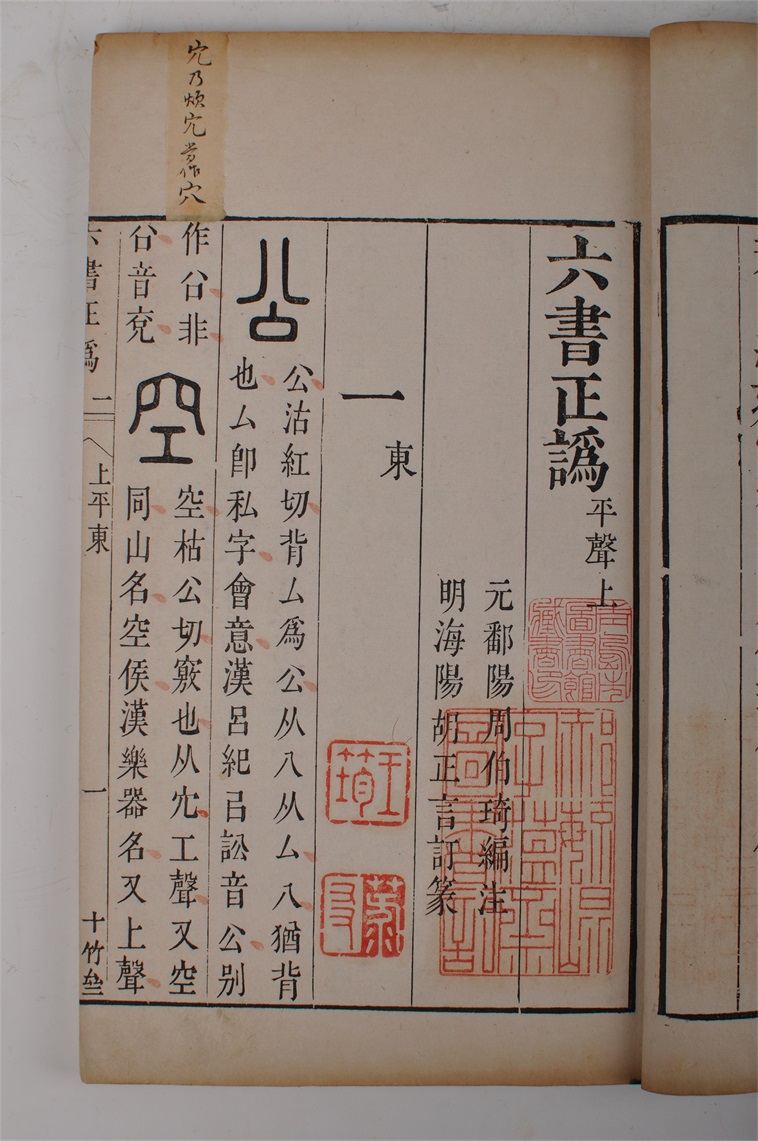 六書正譌 平聲上
元鄱陽周伯琦編注
明海陽胡正言訂篆
一東
公
公沽紅切背厶爲公从八从厶八猶背
也厶卽私字會意漢呂紀㠯訟音公别
作㕣非
㕣音兗
空
空枯公切竅也从宂工聲又空
同山名空侯漢樂器名又上聲
六書正譌 二 上平東 一 十竹
宂乃煩宂當作穴
王筠